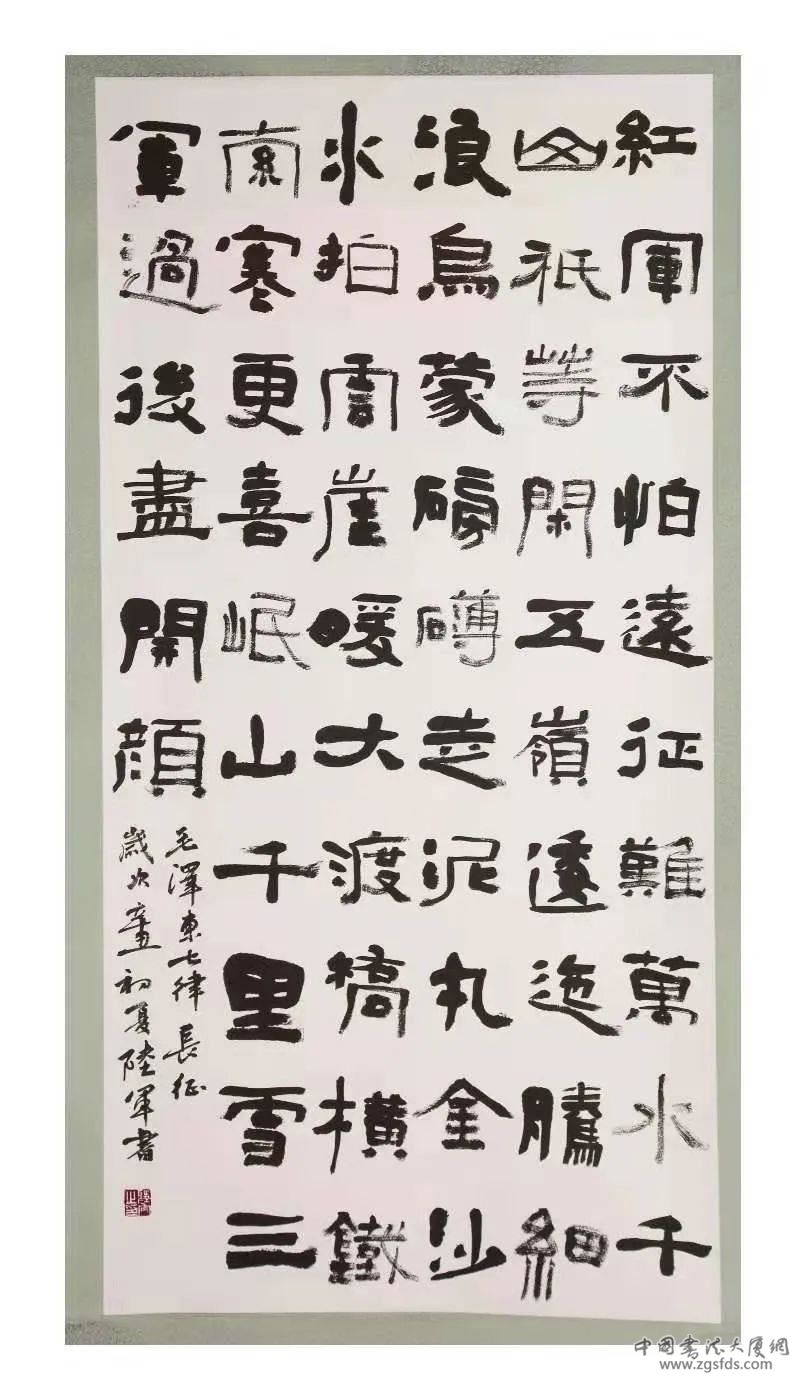 紅軍不怕遠征難萬水千
山祇等閑五嶺逶迤騰細
浪烏蒙磅礴走泥丸金沙
水拍雲崖暖大渡橋橫鐵
索寒更喜岷山千里雪三
軍過後盡開顏
毛澤東七律長征
歲次辛丑初夏陸軍書
中国書法大厦網
www.zgsfds.com